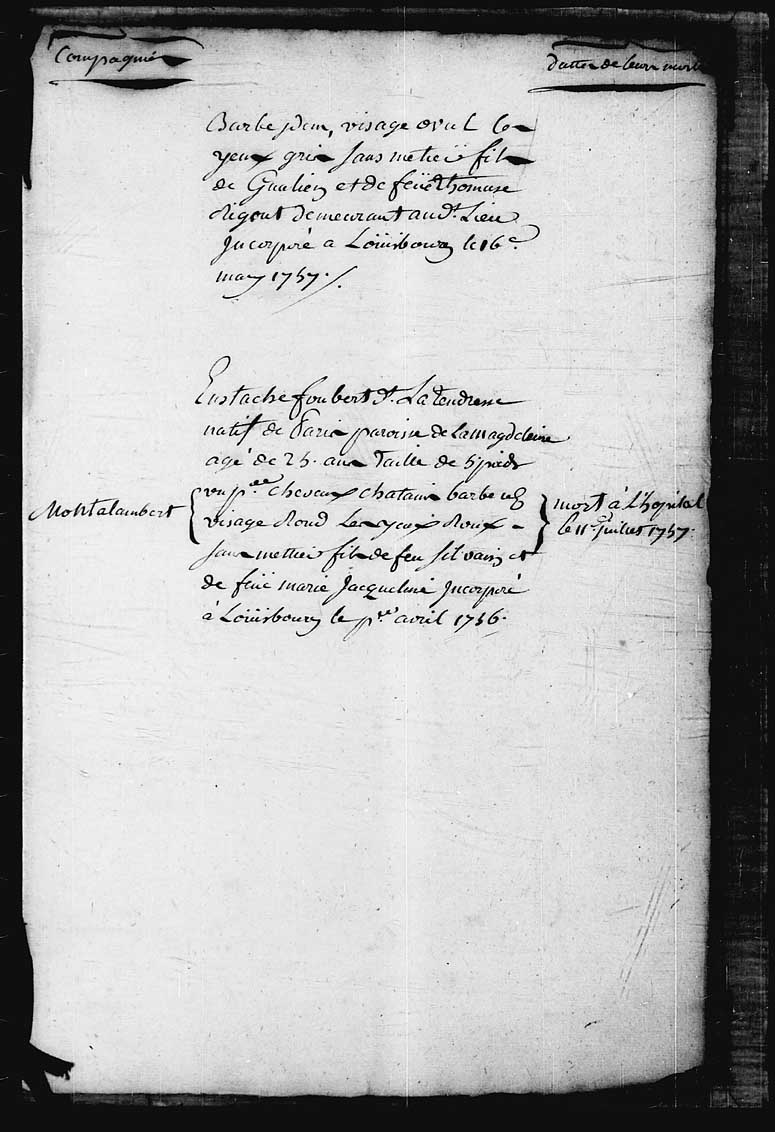 Compagnies
dattes de leurs morts
Barbe idem, visage oval les
yeux gris sans metier fils
de Gaulien et de feüe thomase
Rigout demeurant aud.t Lieu
Incorporé a Loüisbourg le 16e.
may 1757./.
Eustache foubert d.t La tendresse
natif de Paris paroisse de la magdeleine
agé de 25. ans Taille de 5 pieds
un p.ce cheveux chatains barbe
visage Rond Les yeux Roux
sans mettier fils de feu silvain et
de feüe marie Jacqueline Incorporé
à Loüisbourg le p.er avril 1756.
Montalambert
mort à L'hopital
le 11e Juillet 1757.